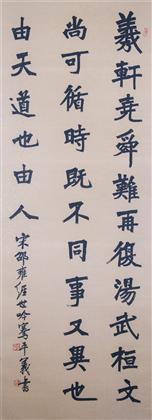 羲軒堯舜難再復湯武桓文
尚可循時既不同事又異也
由天道也由人
宋邵雍經世吟寫平義書